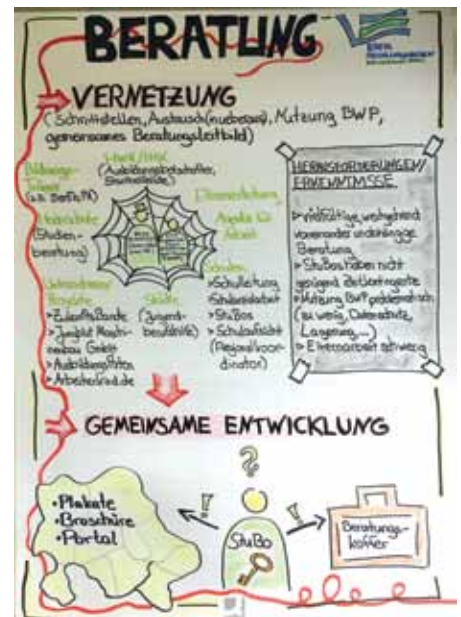 BERATUNG
VERNETZUNG
(Schnittstellen, Austausch (nuebergm), Nutzung BWP,
gemeinsames Beratungsleitbild)
Bildungs-
träger
IHWK/IHK
(Ausbildungsbotschafter,
Hochschule
(Studien-
beratung)
Elternvertretung
Agentur für
Arbeit
Unternehmen/
Projekte
➤ Zukunfts Bande
➤ Jungblut Maschi-
nenbau GmbH
➤ Ausbildungspaten
➤ Arbeiterkind.de
Städte
(Jugend-
berufshilfe)
Schulen
➤ Schulleitung
➤ Schulsozialarbeit
➤ StuBos
➤ Schulaufsicht
(Regionalkoor-
dinator)
HERAUSFORDERUNGEN/
ERKENNTNISSE
➤ vielfältige, weitgehend
voneinander unabhängige
Beratung
➤ StuBos haben nicht
genügend Zeitkontingente
➤ Nutzung BWP problematisch
(zu wenig, Datenschutz,
Lagerung...)
➤ Elternarbeit schwierig
GEMEINSAME ENTWICKLUNG
?
• Plakate
• Broschüre
• Portal
!
StuBo
!
Beratungs-
koffer